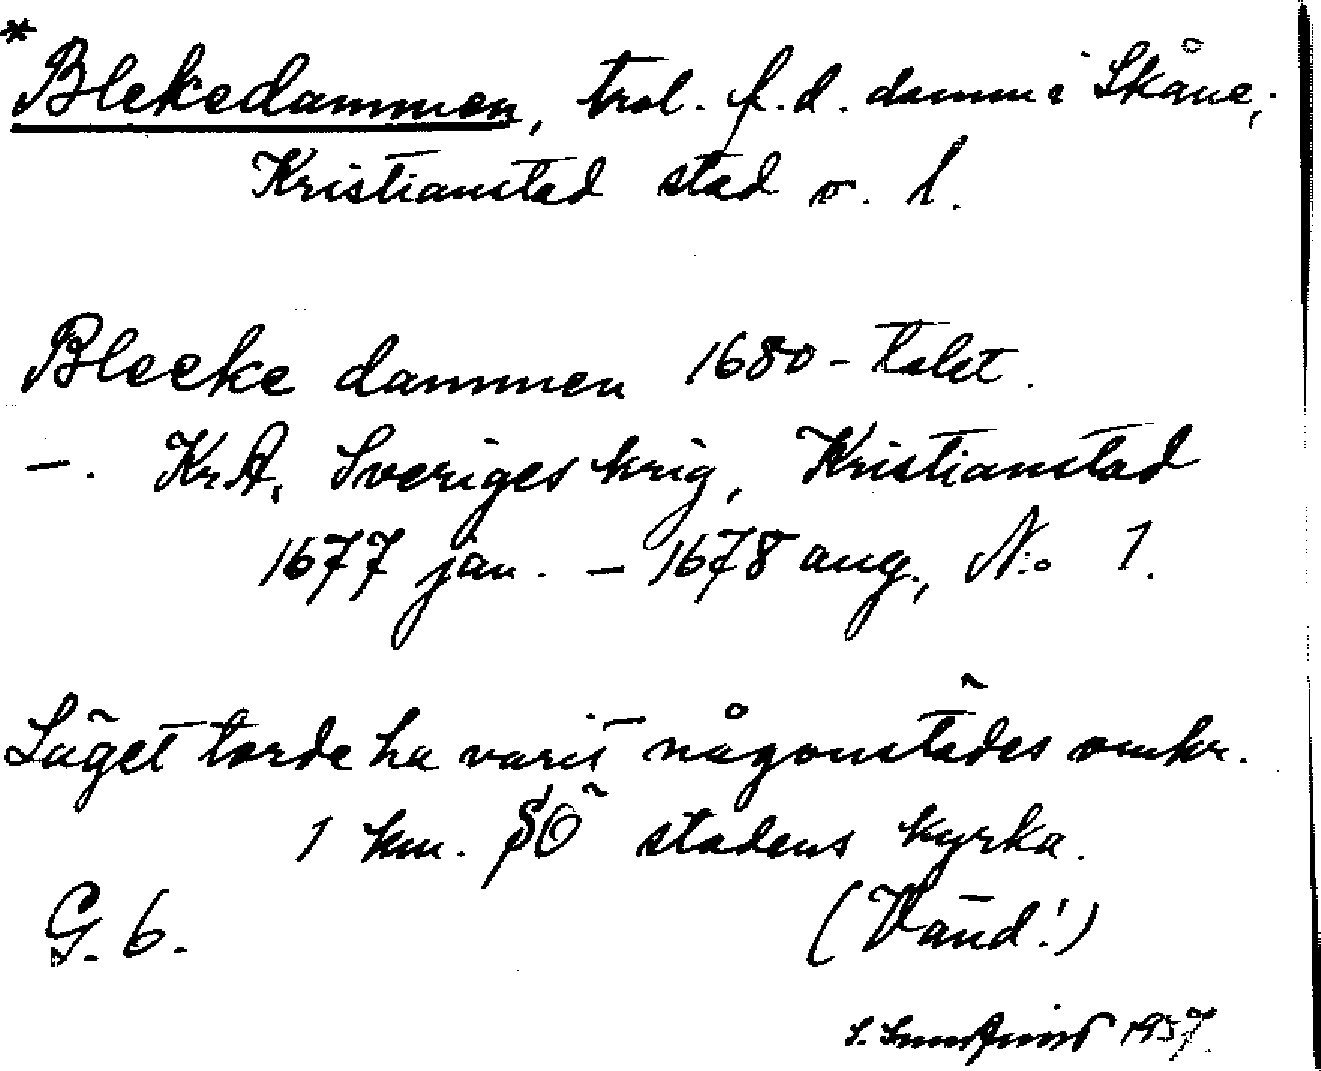 *Blekedammen, trol. f.d. damm i Skåne,
Kristianstad stad o. l.
Bleeke dammen 1680-talet.
–. KrA, Sveriges krig, Kristianstad
1677 jan. – 1678 aug., N:o 1.
Läget torde ha varit någonstädes omkr.
1 km. SÖ stadens kyrka.
G. 6. (Vänd!)
S. 1957.